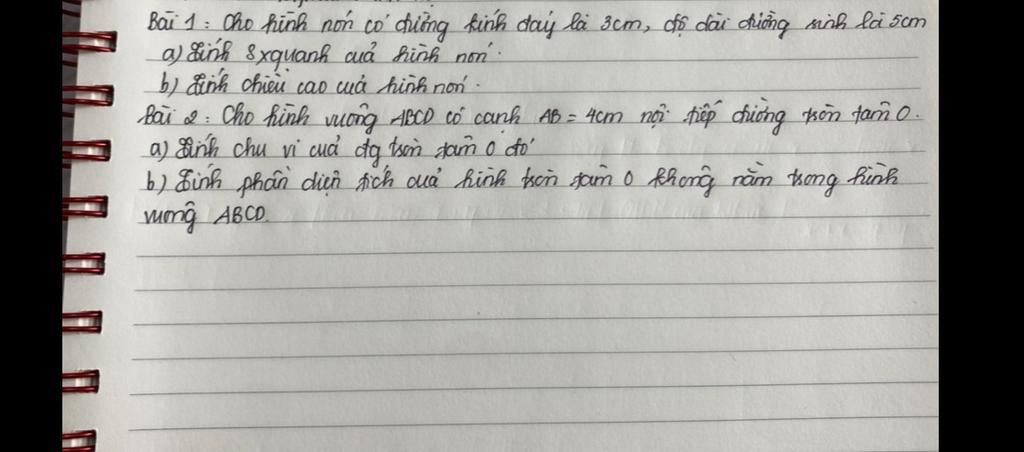 Bài 1: Cho hình nón có đường kính đáy là 3cm, độ dài đường sinh là 5cm
a) Tính Sxquanh của hình nón.
b) Tính chiều cao của hình nón.
Bài 2: Cho hình vuông ABCD có cạnh AB = 4cm nội tiếp đường tròn tâm O.
a) Tính chu vi của đg tròn tâm O đó
b) Tính phần diện tích của hình tròn tâm O không nằm trong hình
vuông ABCD.